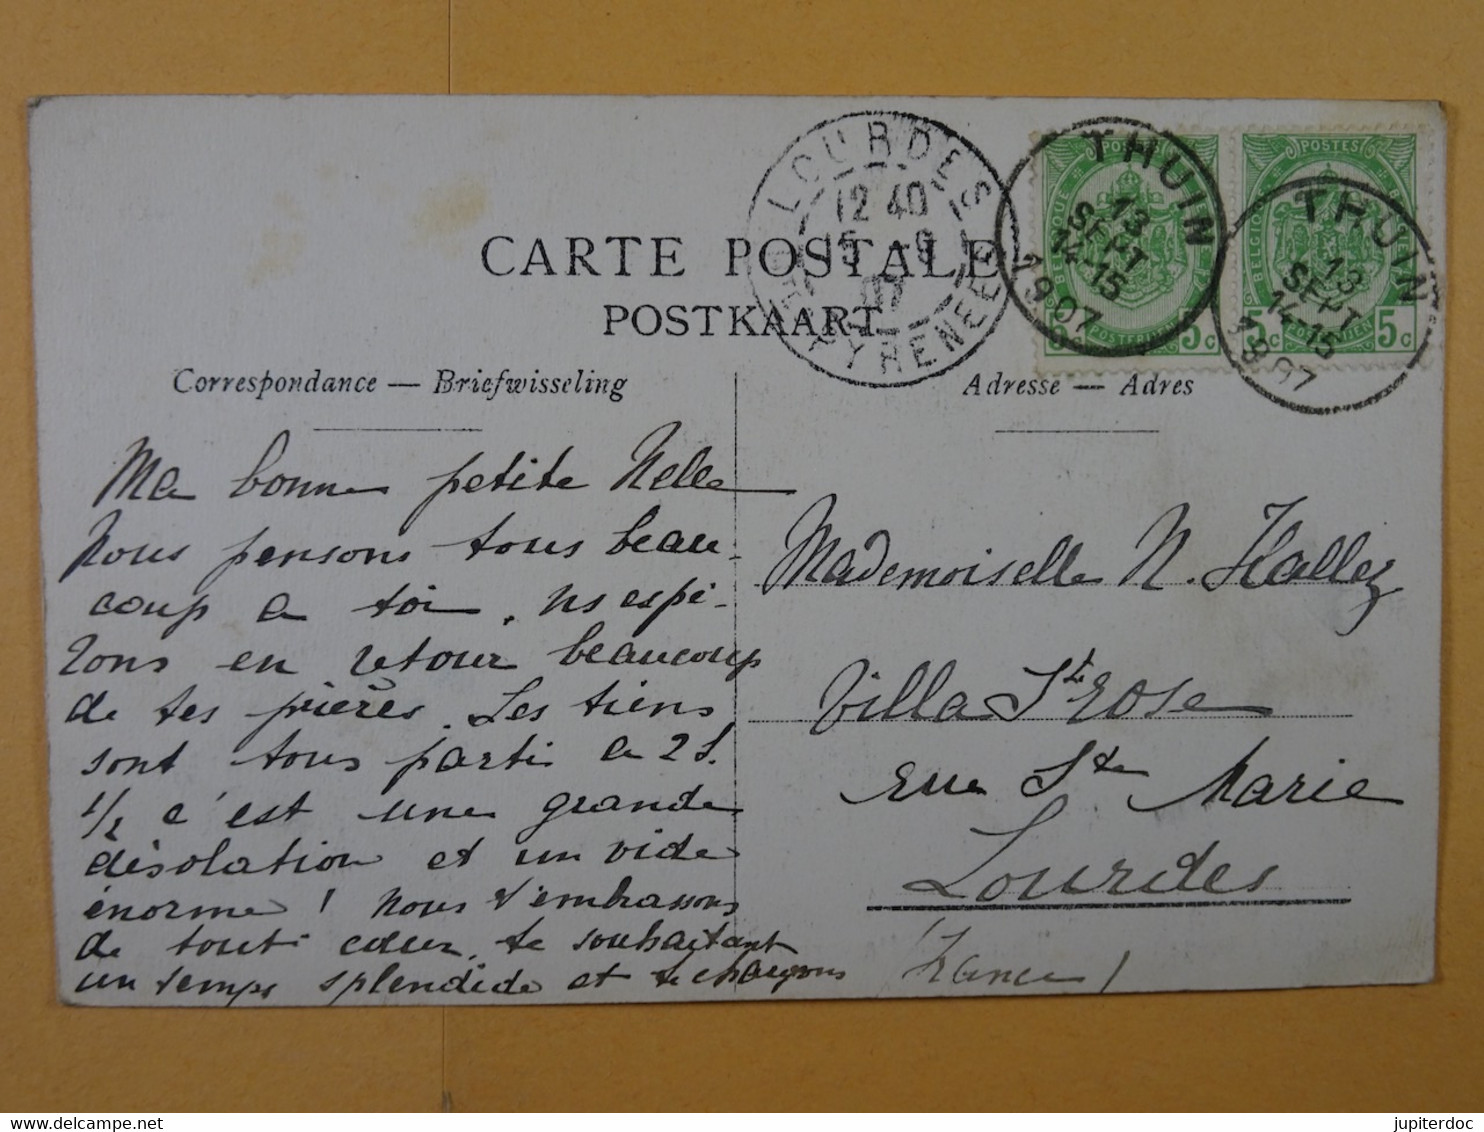 CARTE POSTALE
POSTKAART
Correspondance — Briefwisseling
Adresse — Adres
LOURDES
12 40
15 -9
07
HTES PYRENEES
THUIN
13
SEPT
14-15
1907
THUIN
13
SEPT
14-15
1907
POSTES
BELGIQUE
POSTERIJEN
5c 5c
POSTES
BELGIQUE
5c 5c
Ma bonne petite Nelle
Nous pensons tous beau-
coup a toi, ns espé-
rons en retour beaucoup
de tes prières. Les tiens
sont tous parti a 2 h.
1/2 c'est une grande
désolation et un vide
énorme ! Nous t'embrassons
de tout cœur, te souhaitant
un temps splendide et te chargeons
Mademoiselle N. Hallez
Villa Ste Rose
rue Ste Marie
Lourdes
(France)
jupiterdoc
www.delcampe.net